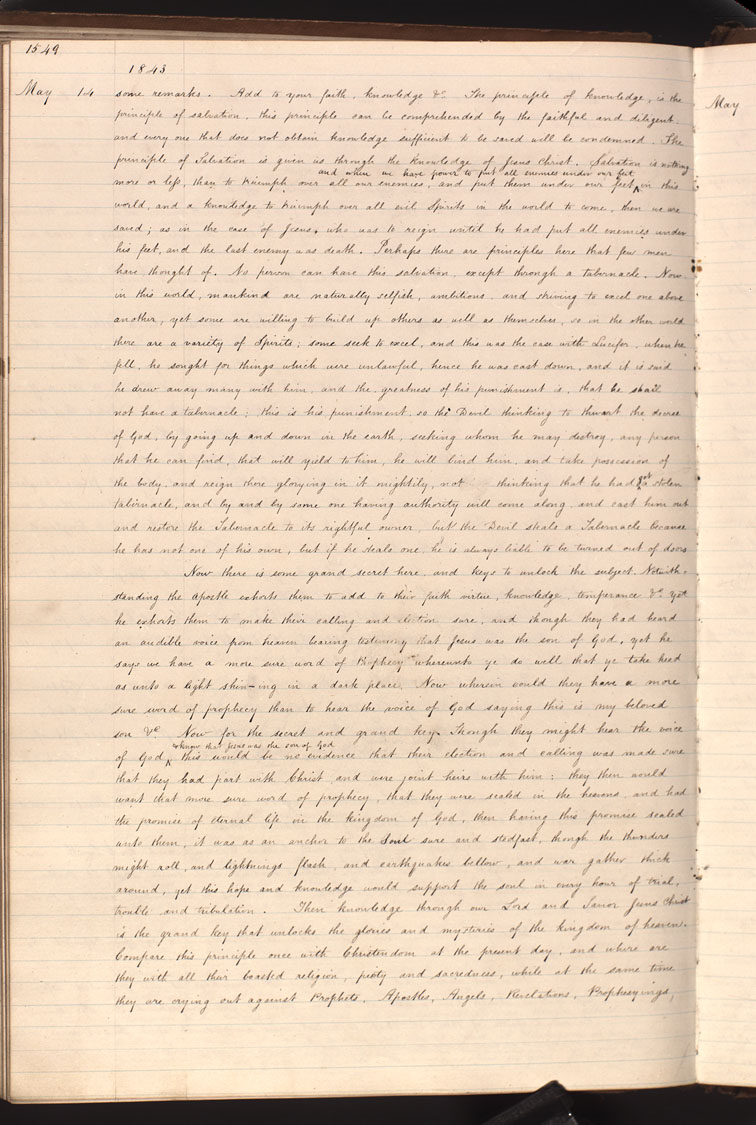 1549
1843
May 14 some remarks. Add to your faith, knowledge &c. The principle of knowledge, is the
May
principle of salvation, this principle can be comprehended by the faithful and diligent.
and every one that does not obtain knowledge sufficient to be saved will be condemned. The
principle of Salvation is given us through the knowledge of Jesus Christ. Salvation is nothing
and when we have power to put all enemies under our feet
more or less, than to triumph over all our enemies, and put them under our feet ^ in this
world, and a knowledge to triumph over all evil Spirits in the world to come, then we are
saved; as in the case of Jesus, who was to reign until he had put all enemies under
his feet, and the last enemy was death. Perhaps there are principles here that few men
have thought of. No person can have this salvation, except through a tabernacle. Now
in this world, mankind are naturally selfish, ambitious, and striving to excel one above
another, yet some are willing to build up others as well as themselves, so in the other world
there are a variety of Spirits; some seek to excel, and this was the case with Lucifer, when he
fell, he sought for things which were unlawful, hence he was cast down, and it is said
he drew away many with him, and the greatness of his punishment is, that he shall
not have a tabernacle; this is his punishment, so the Devil thinking to thwart the decree
of God, by going up and down in the earth, seeking whom he may destroy, any person
that he can find, that will yield to him, he will bind him, and take possession of
the body, and reign there glorying in it mightily, not thinking that he had got ^ a stolen
tabernacle, and by and by some one having authority will come along, and cast him out
and restore the Tabernacle to its rightful owner, but the Devil steals a Tabernacle because
he has not one of his own, but if he steals one, he is always liable to be turned out of doors
Now there is some grand secret here, and keys to unlock the subject. Notwith-
standing the apostle exhorts them to add to their faith virtue, knowledge, temperance &c yet
he exhorts them to make their calling and election sure, and though they had heard
an audible voice from heaven bearing testimony that Jesus was the son of God, yet he
says we have a more sure word of Prophecy whereunto ye do well that ye take heed
as unto a light shin-ing in a dark place. Now wherein could they have a more
sure word of prophecy than to hear the voice of God saying this is my beloved
son &c. Now for the secret and grand key. Though they might hear the voice
& know that Jesus was the son of God
of God ^ this would be no evidence that their election and calling was made sure
that they had part with Christ and were joint heirs with him; they then would
want that more sure word of prophecy, that they were sealed in the heavens, and had
the promise of eternal life in the kingdom of God, then having this promise sealed
unto them, it was as an anchor to the Soul sure and stedfast, though the thunders
might roll, and lightnings flash, and earthquakes bellow, and war gather thick
around, yet this hope and knowledge would support the soul in every hour of trial,
trouble and tribulation. Then knowledge through our Lord and Savior Jesus Christ
is the grand key that unlocks the glories and mysteries of the kingdom of heaven.
Compare this principle once with Christendom at the present day, and where are
they with all their boasted religion, piety and sacredness, while at the same time
they are crying out against Prophets, Apostles, Angels, Revelations, Prophesyings,